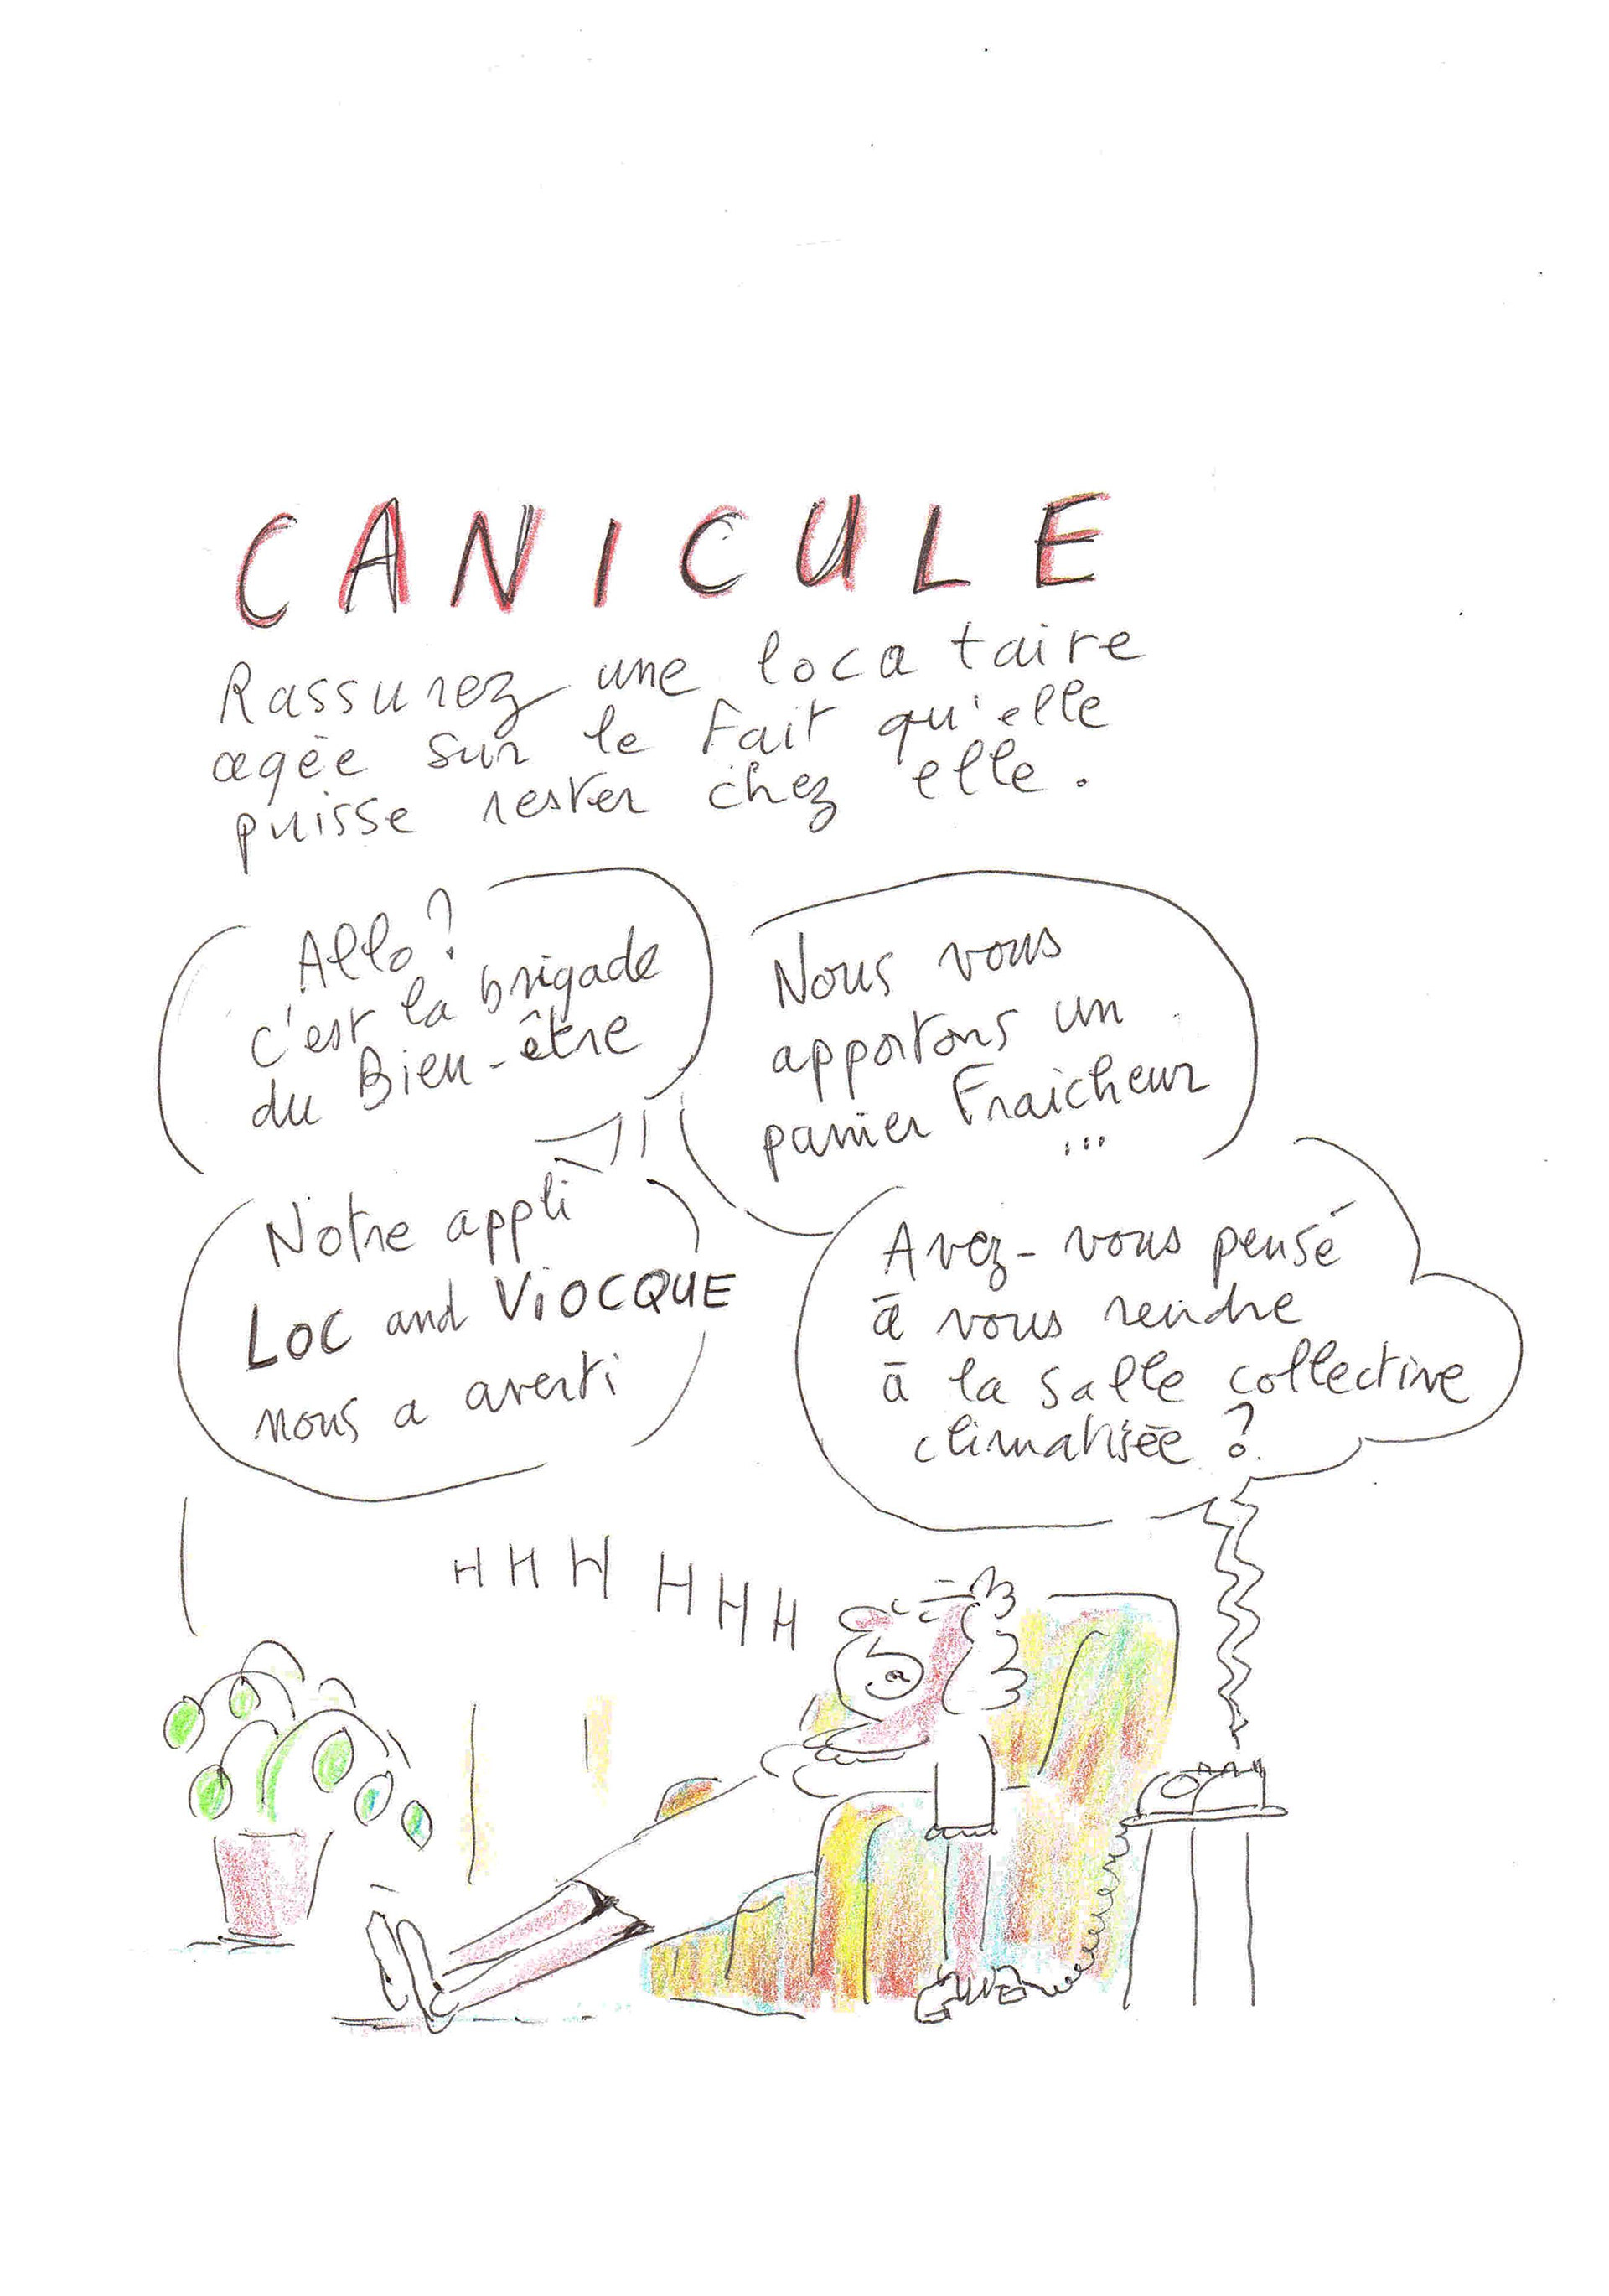 CANICULE
Rassurez une locataire
agée sur le Fait qu'elle
puisse rester chez elle.
Allo?
c'est la brigade
du Bien-être
Nous vous
apportons un
panier Fraicheur
...
Notre appli
LOC and ViOCQUE
nous a averti
Avez-vous pensé
à vous rendre
à la salle collective
climatisée ?
HHH HHH